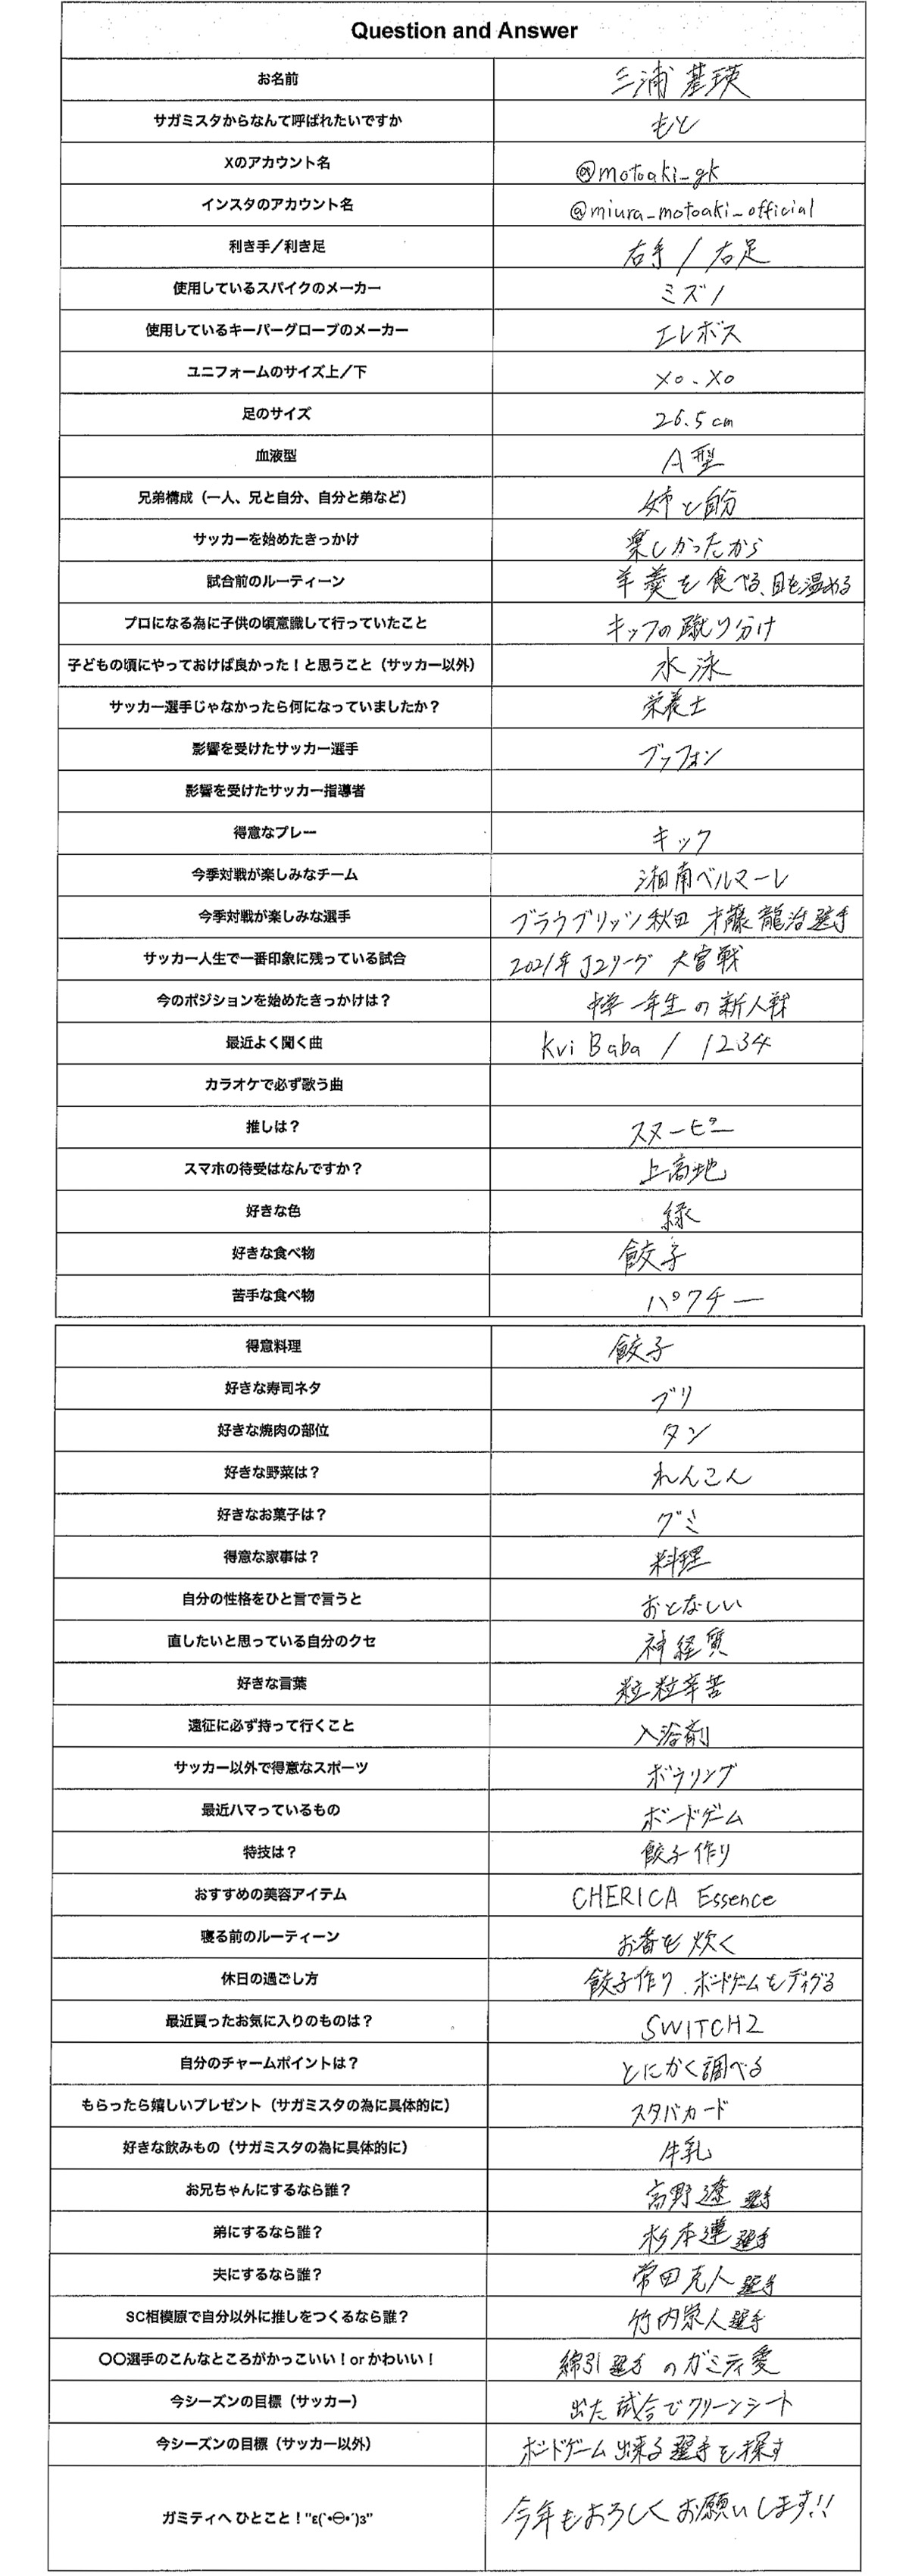 Question and Answer
お名前 三浦 基瑛
サガミスタからなんて呼ばれたいですか もと
Xのアカウント名 @motoaki_gk
インスタのアカウント名 @miura_motoaki_official
利き手／利き足 右手 / 右足
使用しているスパイクのメーカー ミズノ
使用しているキーパーグローブのメーカー エレボス
ユニフォームのサイズ上／下 XO.XO
足のサイズ 26.5cm
血液型 A型
兄弟構成（一人、兄と自分、自分と弟など） 姉と自分
サッカーを始めたきっかけ 楽しかったから
試合前のルーティーン 羊羹を食べる、目を温める
プロになる為に子供の頃意識して行っていたこと キックの蹴り分け
子どもの頃にやっておけば良かった！と思うこと（サッカー以外） 水泳
サッカー選手じゃなかったら何になっていましたか？ 栄養士
影響を受けたサッカー選手 ブッフォン
影響を受けたサッカー指導者
得意なプレー キック
今季対戦が楽しみなチーム 湘南ベルマーレ
今季対戦が楽しみな選手 ブラウブリッツ秋田 才藤龍治選手
サッカー人生で一番印象に残っている試合 2021年J2リーグ 大宮戦
今のポジションを始めたきっかけは？ 中学一年生の新人戦
最近よく聞く曲 Kvi Baba / 1234
カラオケで必ず歌う曲
推しは？ スヌーピー
スマホの待受はなんですか？ 上高地
好きな色 緑
好きな食べ物 餃子
苦手な食べ物 パクチー
得意料理 餃子
好きな寿司ネタ ブリ
好きな焼肉の部位 タン
好きな野菜は？ れんこん
好きなお菓子は？ グミ
得意な家事は？ 料理
自分の性格をひと言で言うと おとなしい
直したいと思っている自分のクセ 神経質
好きな言葉 粒粒辛苦
遠征に必ず持って行くこと 入浴剤
サッカー以外で得意なスポーツ ボウリング
最近ハマっているもの ボードゲーム
特技は？ 餃子作り
おすすめの美容アイテム CHERICA Essence
寝る前のルーティーン お香を炊く
休日の過ごし方 餃子作り、ボードゲームをディグる
最近買ったお気に入りのものは？ SWITCH2
自分のチャームポイントは？ とにかく調べる
もらったら嬉しいプレゼント（サガミスタの為に具体的に） スタバカード
好きな飲みもの（サガミスタの為に具体的に） 牛乳
お兄ちゃんにするなら誰？ 高野遼選手
弟にするなら誰？ 杉本蓮選手
夫にするなら誰？ 常田克人選手
SC相模原で自分以外に推しをつくるなら誰？ 竹内崇人選手
〇〇選手のこんなところがかっこいい！orかわいい！ 綿引選手のガミティ愛
今シーズンの目標（サッカー） 出た試合でクリーンシート
今シーズンの目標（サッカー以外） ボードゲーム出来る選手を探す
ガミティへ ひとこと！"ε(´•㉨•`)з" 今年もよろしくお願いします!!